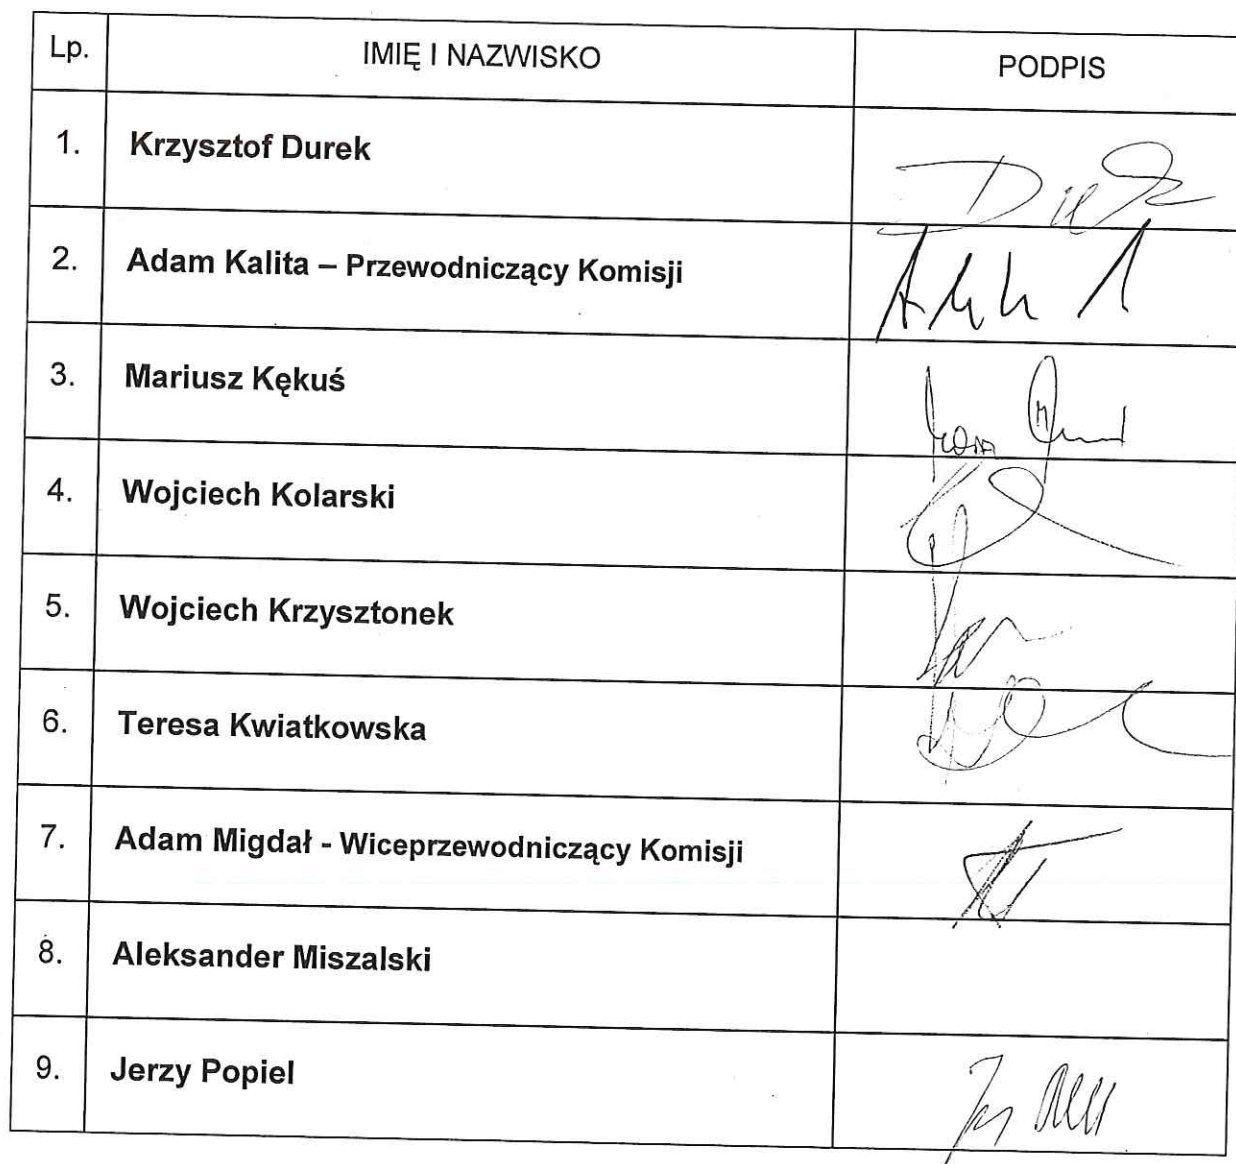 Lp. IMIĘ I NAZWISKO PODPIS
1. Krzysztof Durek
2. Adam Kalita – Przewodniczący Komisji
3. Mariusz Kękuś
4. Wojciech Kolarski
5. Wojciech Krzysztonek
6. Teresa Kwiatkowska
7. Adam Migdał - Wiceprzewodniczący Komisji
8. Aleksander Miszalski
9. Jerzy Popiel